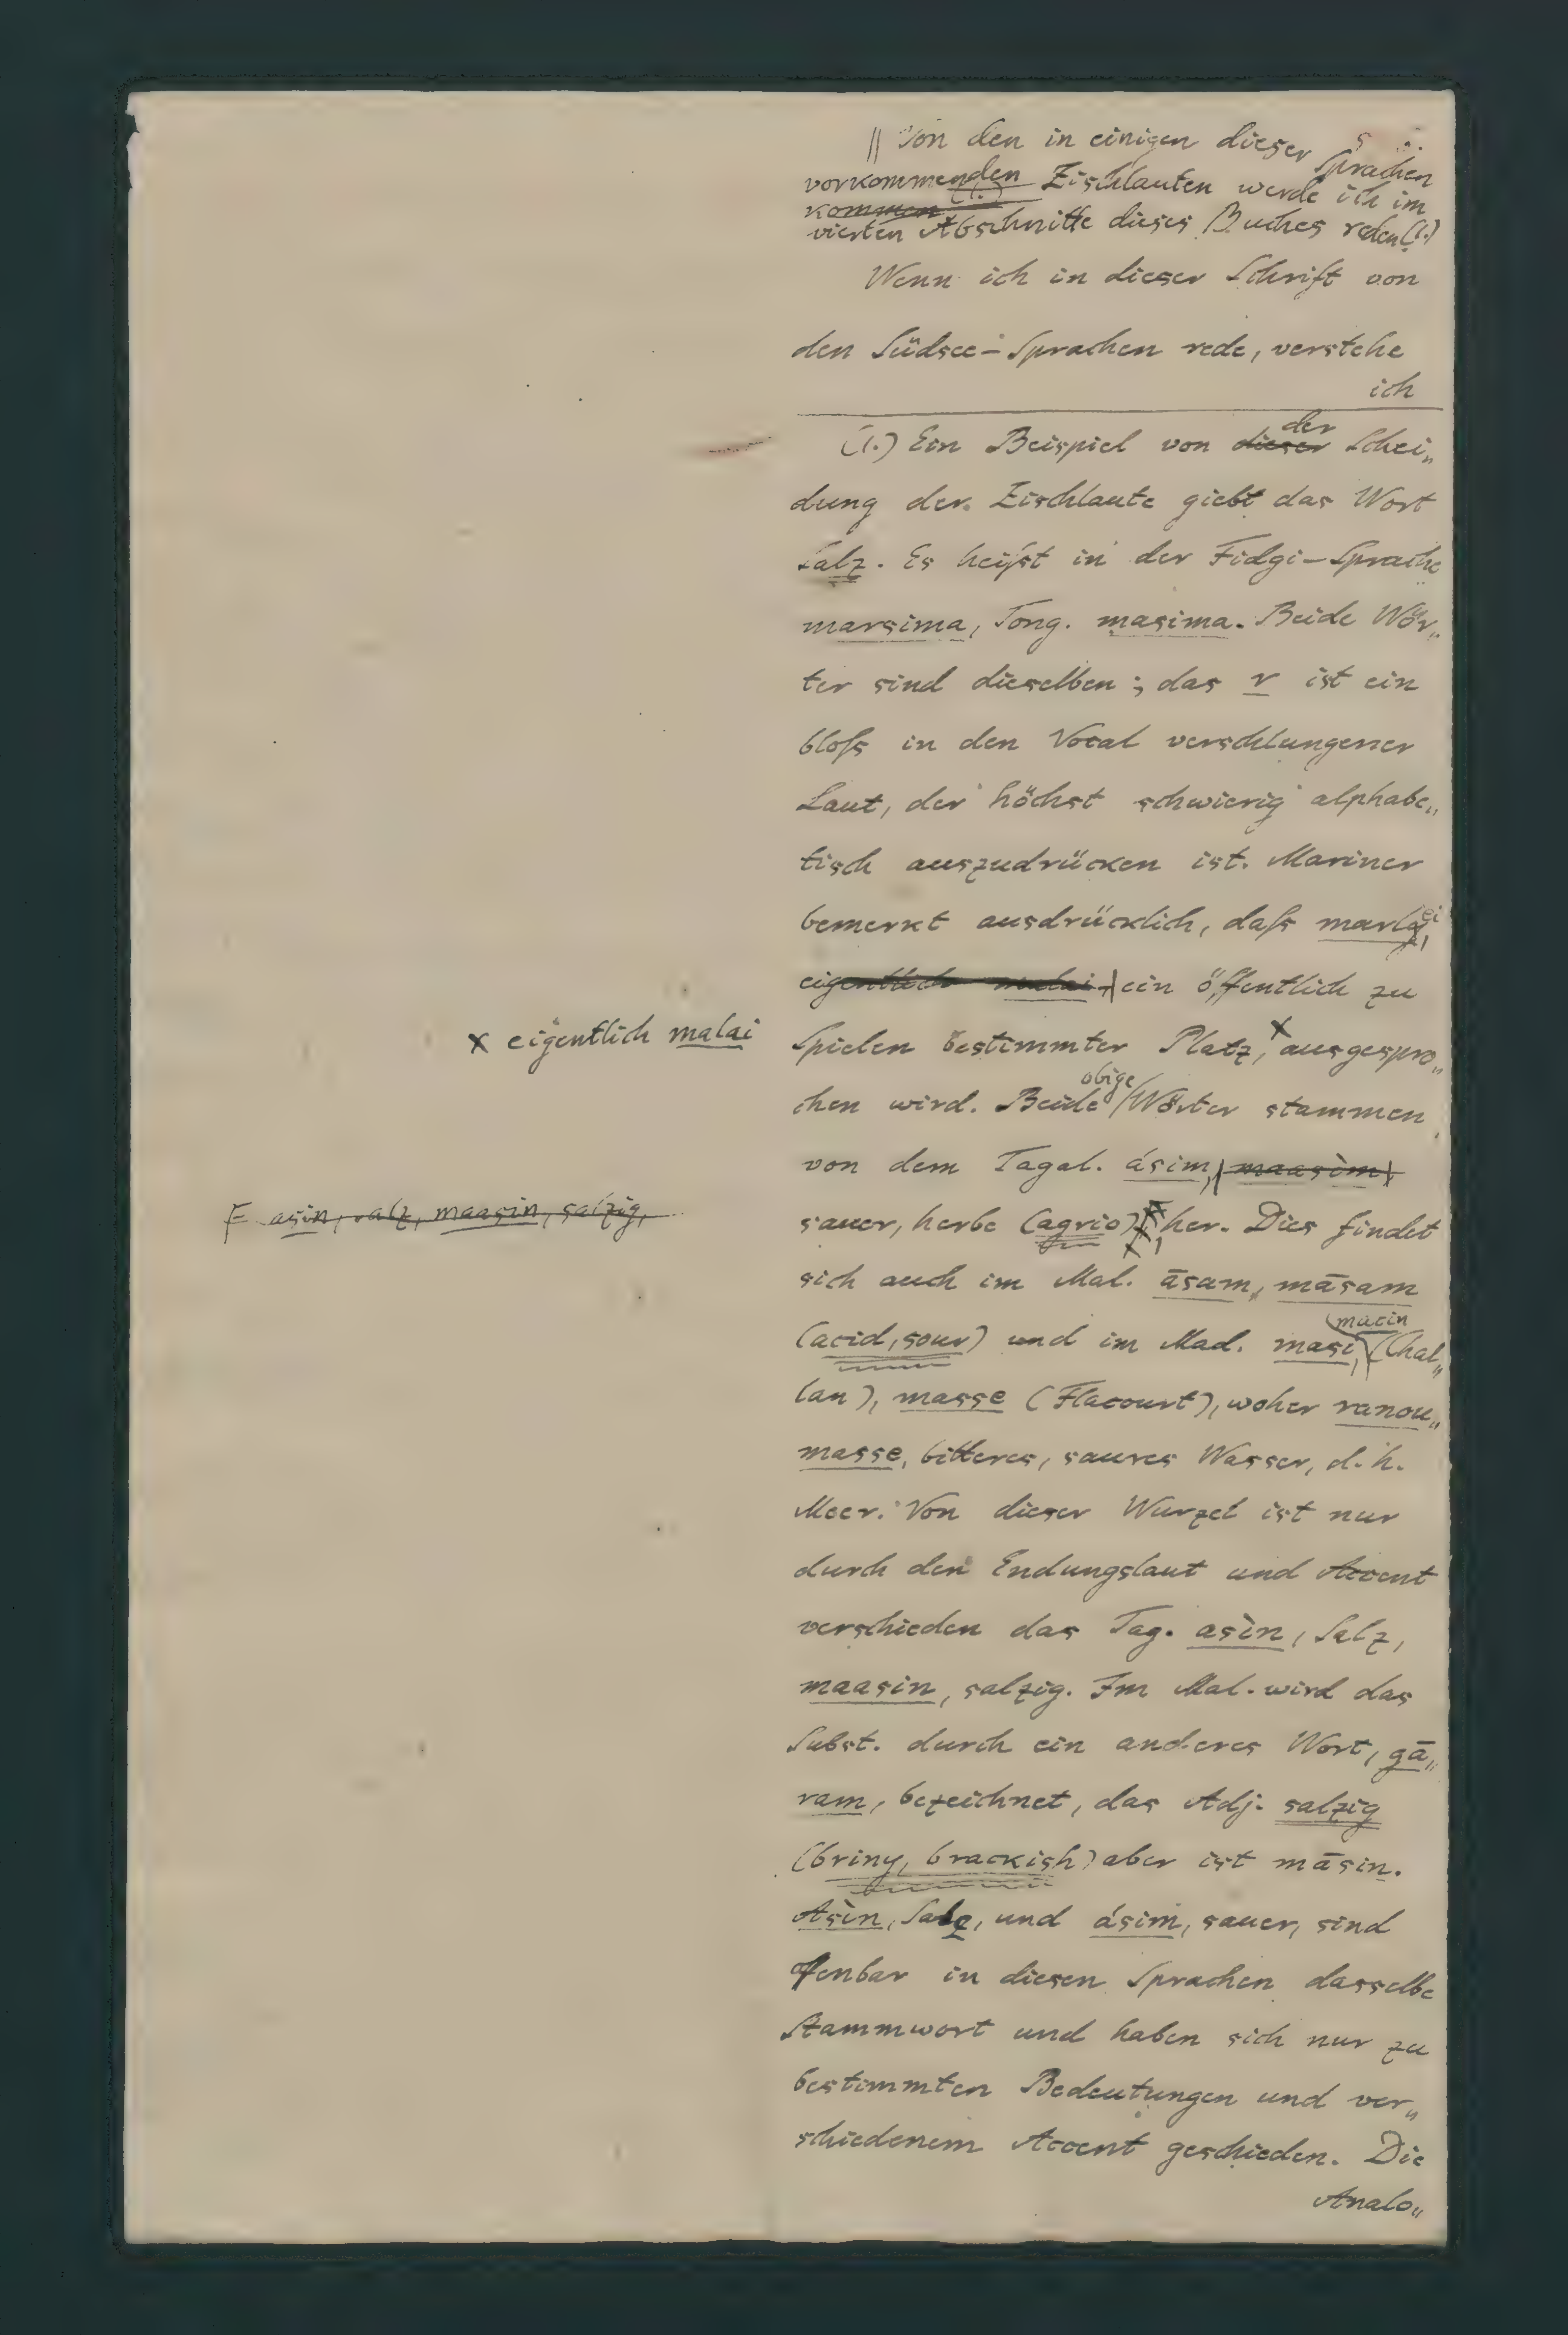 || Von den in einigen dieser Sprachen
vorkommenden Zischlauten werde ich im
kommen (1.)
vierten Abschnitte dieses Buches reden (1.)
Wenn ich in dieser Schrift von
den Südsee-Sprachen rede, verstehe
ich
(1.) Ein Beispiel von dieser der Schei„
dung der Zischlaute giebt das Wort
Salz. Es heißt in der Fidgi-Sprache
marsima, Tong. masima. Beide Wör„
ter sind dieselben; das r ist ein
bloß in den Vocal verschlungener
Laut, der höchst schwierig alphabe„
tisch auszudrücken ist. Mariner
bemerkt ausdrücklich, daß marlei,
eigentlich malai, ein öffentlich zu
x eigentlich malai
Spielen bestimmter Platz, x ausgespro„
chen wird. Beide obige Wörter stammen
von dem Tagal. ásim, maasim
F asin, salz, maasin, salzig,
sauer, herbe (agrio), her. Dies findet
sich auch im Mal. āsam, māsam
(acid, sour) und im Mad. masi, macin (Chal„
lan), masse (Flacourt), woher ranou„
masse, bitteres, saures Wasser, d. h.
Meer. Von dieser Wurzel ist nur
durch den Endungslaut und Accent
verschieden das Tag. asìn, Salz,
maasin, salzig. Im Mal. wird das
Subst. durch ein anderes Wort, gā„
ram, bezeichnet, das Adj. salzig
(briny, brackish) aber ist māsin.
Asìn, Salz, und ásim, sauer, sind
offenbar in diesen Sprachen dasselbe
Stammwort und haben sich nur zu
bestimmten Bedeutungen und ver„
schiedenem Accent geschieden. Die
Analo„